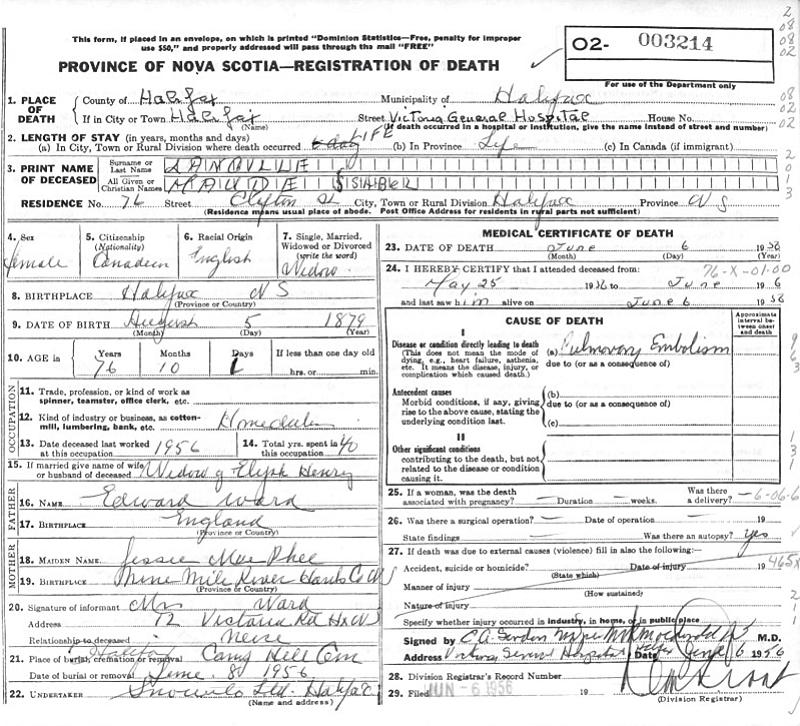 This form, if placed in an envelope, on which is printed "Dominion Statistics—Free, penalty for improper
use $50," and properly addressed will pass through the mail "FREE"
PROVINCE OF NOVA SCOTIA—REGISTRATION OF DEATH
O2- 003214
For use of the Department only
1. PLACE OF DEATH
County of Halifax Municipality of Halifax
If in City or Town Halifax (Name) Street Victoria General Hospital House No.
(If death occurred in a hospital or institution, give the name instead of street and number)
2. LENGTH OF STAY (in years, months and days)
(a) In City, Town or Rural Division where death occurred LIFE (b) In Province Life (c) In Canada (if immigrant)
3. PRINT NAME OF DECEASED
Surname or Last Name
All Given or Christian Names MAUDE ISABEL
RESIDENCE No. 76 Street Clifton St City, Town or Rural Division Halifax Province N S
(Residence means usual place of abode. Post Office Address for residents in rural parts not sufficient)
4. Sex female
5. Citizenship (Nationality) Canadian
6. Racial Origin English
7. Single, Married, Widowed or Divorced (write the word) Widow
8. BIRTHPLACE Halifax N S
(Province or Country)
9. DATE OF BIRTH August 5 1879
(Month) (Day) (Year)
10. AGE in Years 76 Months 10 Days 1 If less than one day old hrs. or min.
OCCUPATION
11. Trade, profession, or kind of work as spinner, teamster, office clerk. etc.
12. Kind of industry or business, as cotton-mill, lumbering, bank, etc.
13. Date deceased last worked at this occupation 1956
14. Total yrs. spent in this occupation 40
15. If married give name of wife or husband of deceased Widow of Henry
FATHER
16. NAME Edward Ward
17. BIRTHPLACE England
(Province or Country)
MOTHER
18. MAIDEN NAME Jessie MacPhee
19. BIRTHPLACE Nine Mile River Hants Co N S
(Province or Country)
20. Signature of informant Mrs Ward
Address 72 Victoria Rd Hx NS
Relationship to deceased Neise
21. Place of burial, cremation or removal Halifax Camp Hill Cem
Date of burial or removal June 8 1956
22. UNDERTAKER Snow's Ltd. Halifax
(Name and address)
MEDICAL CERTIFICATE OF DEATH
23. DATE OF DEATH June 6 1956
(Month) (Day) (Year)
24. I HEREBY CERTIFY that I attended deceased from: 76-X-01-00
May 25 1956 to June 6
and last saw him alive on June 6 1956
CAUSE OF DEATH
Approximate interval between onset and death
I
Disease or condition directly leading to death (a) Pulmonary Embolism
(This does not mean the mode of dying, e.g., heart failure, asthenia, etc. It means the disease, injury, or complication which caused death.)
due to (or as a consequence of)
Antecedent causes
Morbid conditions, if any, giving rise to the above cause, stating the underlying condition last.
(b)
due to (or as a consequence of)
(c)
II
Other significant conditions
contributing to the death, but not related to the disease or condition causing it.
25. If a woman, was the death associated with pregnancy? — Duration — weeks. Was there a delivery? —6-06-6
26. Was there a surgical operation? — Date of operation — 19
State findings — Was there an autopsy? yes
27. If death was due to external causes (violence) fill in also the following:—
Accident, suicide or homicide? Date of injury 19 465X
(State which)
Manner of injury
(How sustained)
Nature of injury
Specify whether injury occurred in industry, in home, or in public place
Signed by M.D.
Address Victoria General Hospital Date June 6 1956
28. Division Registrar's Record Number
29. Filed JUN - 6 1956
(Division Registrar)